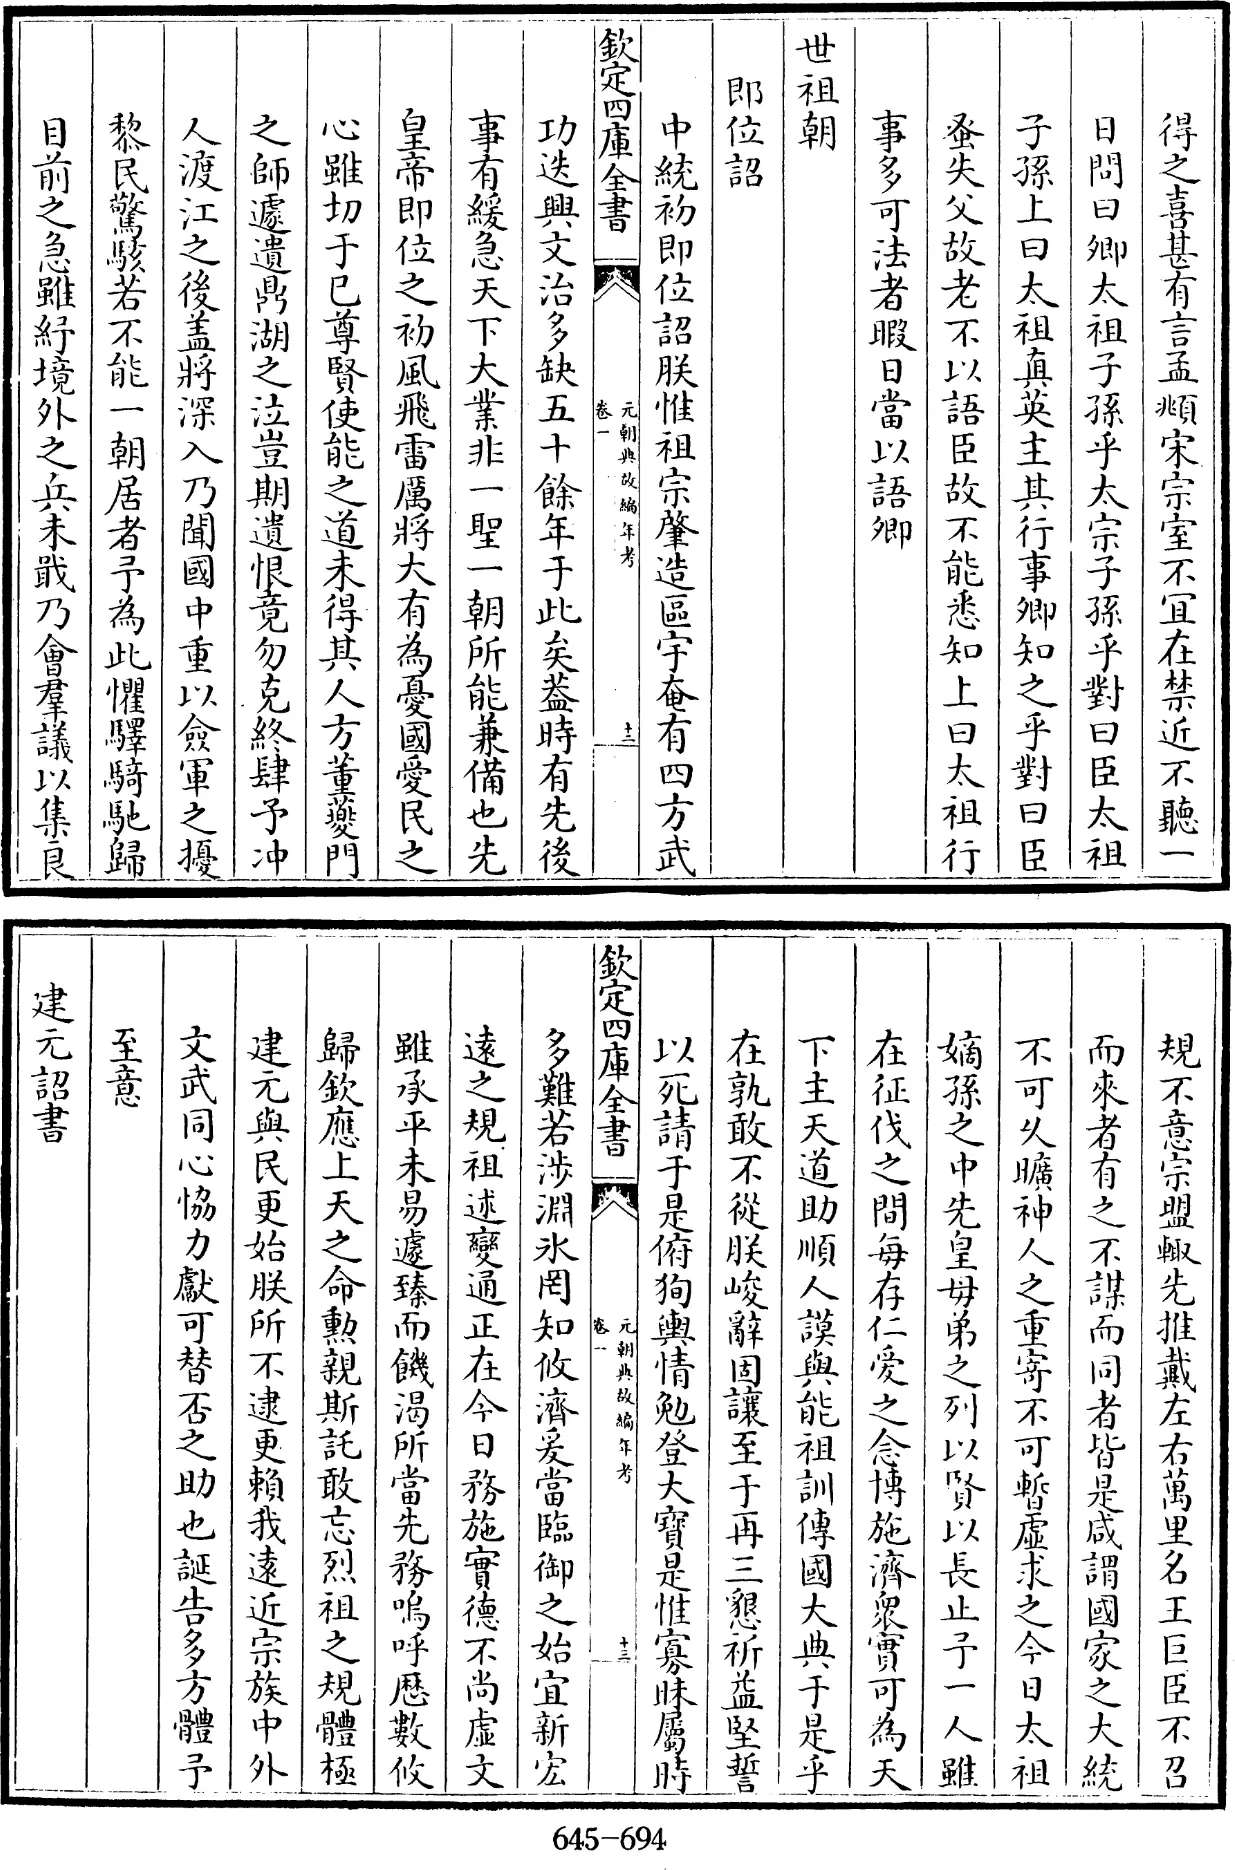 得之喜甚有言孟頫宋宗室不宜在禁近不聽一
日問曰卿太祖子孫乎太宗子孫乎對曰臣太祖
子孫上曰太祖真英主其行事卿知之乎對曰臣
蚤失父故老不以語臣故不能悉知上曰太祖行
事多可法者暇日當以語卿
世祖朝
即位詔
中統初即位詔朕惟祖宗肇造區宇奄有四方武
欽定四庫全書
元朝典故編年考
卷一
十二
功迭興文治多缺五十餘年于此矣葢時有先後
事有緩急天下大業非一聖一朝所能兼備也先
皇帝即位之初風飛雷厲將大有為憂國愛民之
心雖切于已尊賢使能之道未得其人方董夔門
之師遽遺鼎湖之泣豈期遺恨竟勿克終肆予冲
人渡江之後盖將深入乃聞國中重以僉軍之擾
黎民驚駭若不能一朝居者予為此懼驛騎馳歸
目前之急雖紓境外之兵未戢乃會羣議以集良
規不意宗盟輙先推戴左右萬里名王巨臣不召
而來者有之不謀而同者皆是咸謂國家之大統
不可乆曠神人之重寄不可暫虛求之今日太祖
嫡孫之中先皇母弟之列以賢以長止予一人雖
在征伐之間每存仁愛之念博施濟衆實可為天
下主天道助順人謨與能祖訓傳國大典于是乎
在孰敢不從朕峻辭固讓至于再三懇祈益堅誓
以死請于是俯狥輿情勉登大寶是惟寡昧屬時
欽定四庫全書
元朝典故編年考
卷一
十三
多難若涉淵氷罔知攸濟爰當臨御之始宜新宏
逺之規祖述變通正在今日務施實德不尚虛文
雖承平未易遽臻而饑渴所當先務嗚呼歴數攸
歸欽應上天之命勲親斯託敢忘烈祖之規體極
建元與民更始朕所不逮更賴我逺近宗族中外
文武同心恊力獻可替否之助也誕告多方體予
至意
建元詔書
645-694